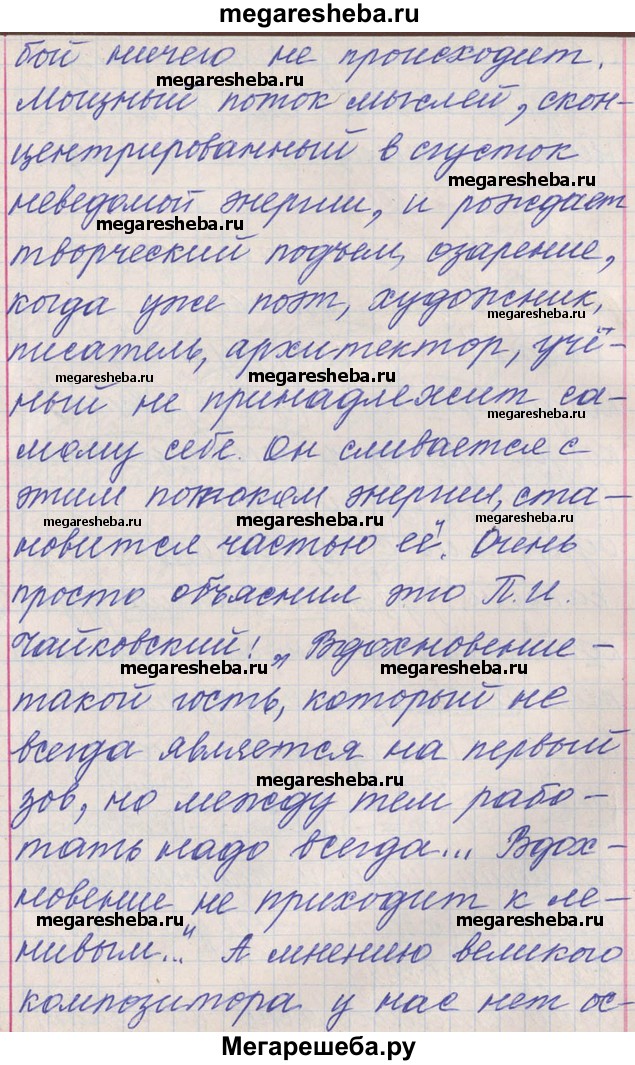 megaresheba.ru
бой ничего не происходит.
megaresheba.ru
Мощный поток мыслей, скон-
центрированный в сгусток
megaresheba.ru
неведомой энергии, и рождает
megaresheba.ru
творческий подъем, озарение,
когда уже поэт, художник,
megaresheba.ru
писатель, архитектор, учё-
megaresheba.ru megaresheba.ru
ный не принадлежит са-
megaresheba.ru
мому себе. Он сливается с
этим потоком энергии, ста-
megaresheba.ru megaresheba.ru megaresheba.ru
новится частью её". Очень
просто объяснил это П.И.
Чайковский! „Вдохновение -
megaresheba.ru megaresheba.ru
такой гость, который не
всегда является на первый
megaresheba.ru
зов, но между тем рабо-
тать надо всегда... Вдох-
новение не приходит к ле-
megaresheba.ru megaresheba.ru
нивым..." А мнению великого
композитора у нас нет ос-
Мегарешеба.ру